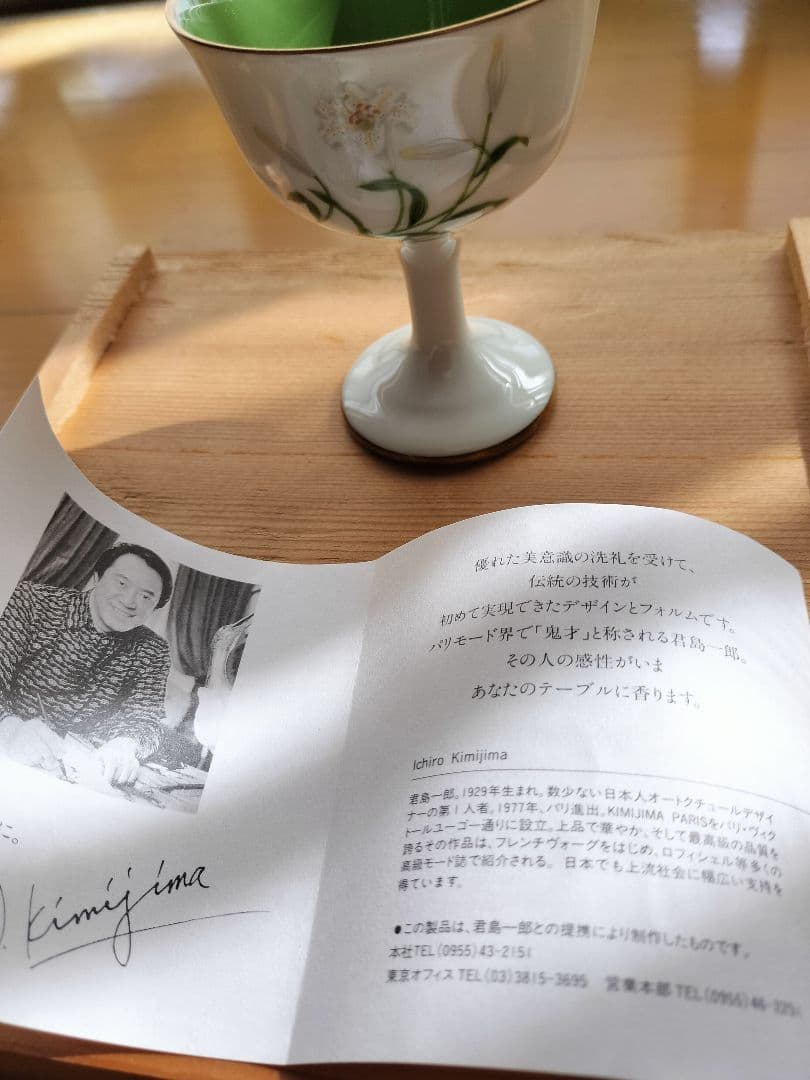 に。
Kimijima
優れた美意識の洗礼を受けて、
伝統の技術が
初めて実現できたデザインとフォルムです。
パリモード界で「鬼才」と称される君島一郎。
その人の感性がいま
あなたのテーブルに香ります。
Ichiro Kimijima
君島一郎。1929年生まれ。数少ない日本人オートクチュールデザイ
ナーの第1人者。1977年、パリ進出。KIMIJIMA PARISをパリ・ヴィク
トールユーゴー通りに設立。上品で華やか、そして最高級の品質を
誇るその作品は、フレンチヴォーグをはじめ、ロフィシェル等多くの
高級モード誌で紹介される。日本でも上流社会に幅広い支持を
得ています。
●この製品は、君島一郎との提携により制作したものです。
本社TEL(0955)43-2151
東京オフィスTEL(03)3815-3695 営業本部TEL(0955)46-